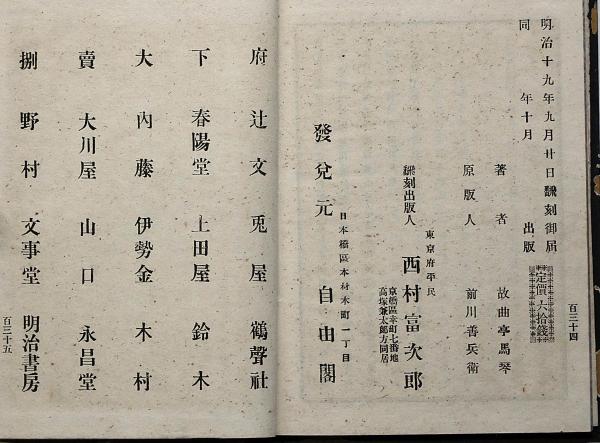 明治十九年九月廿日飜刻御届
同　年十月　出版
定價六拾錢
百三十四
著者　故曲亭馬琴
原版人　前川善兵衛
東京府平民
飜刻出版人　西村富次郎
京橋區幸町七番地
高塚兼太郎方同居
日本橋區本材木町一丁目
發兌元　自由閣
府　辻文　兎屋　鶴聲社
下　春陽堂　上田屋　鈴木
大　内藤　伊勢金　木村
賣　大川屋　山口　永昌堂
捌　野村　文事堂　明治書房
百三十五